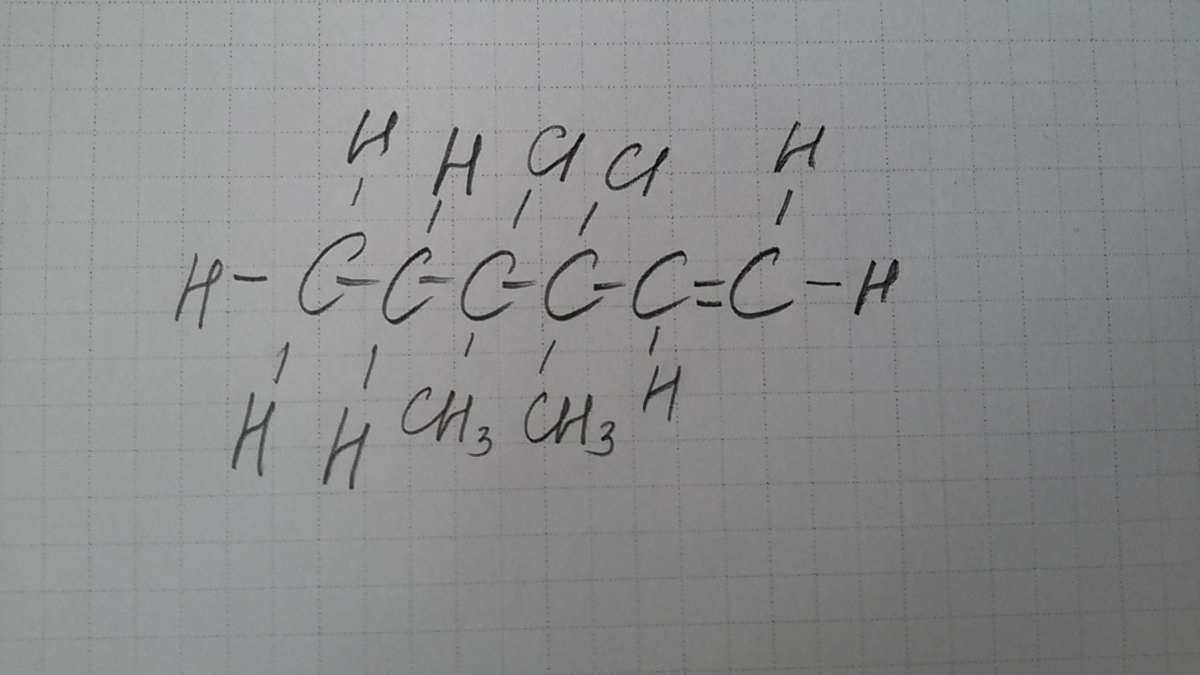 H H Cl Cl H
H-C-C-C-C-C=C-H
H H CH₃ CH₃ H